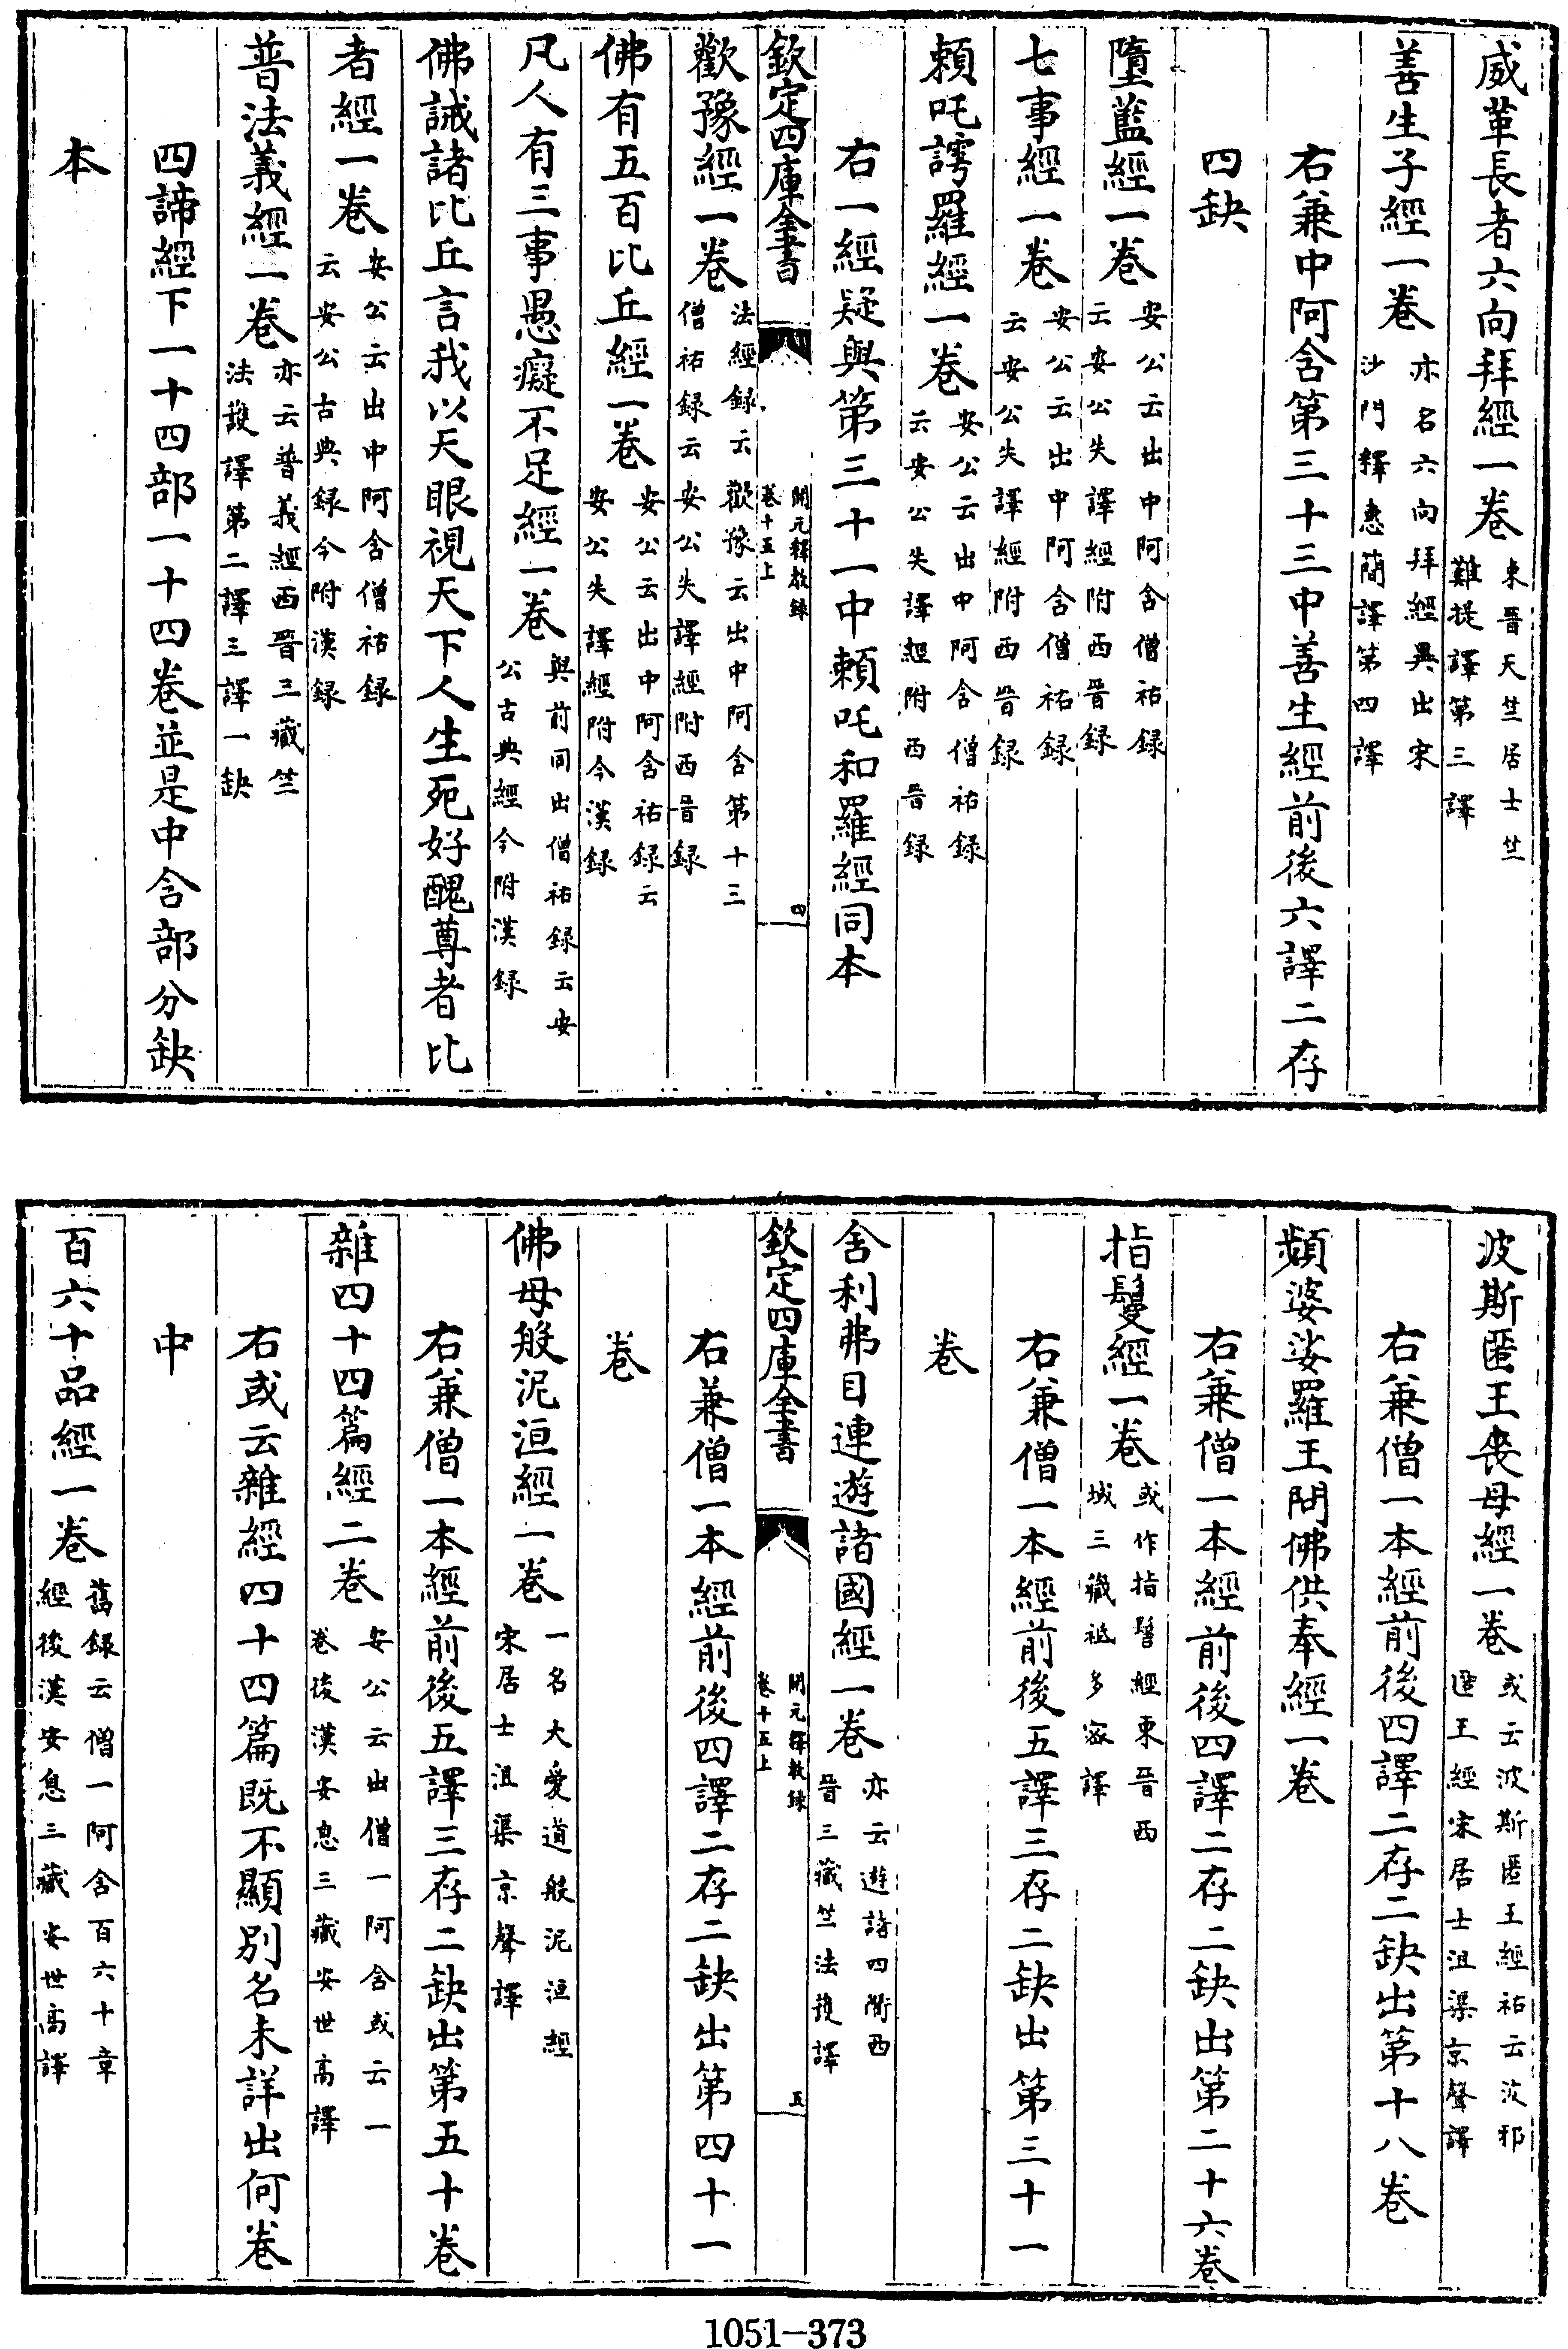 威革長者六向拜經一卷東晉天竺居士竺難提譯第三譯
善生子經一卷亦名六向拜經異出宋沙門釋惠簡譯第四譯
右兼中阿含第三十三中善生經前後六譯二存
四缺
墮藍經一卷安公云出中阿含僧祐録云安公失譯經附西晉録
七事經一卷安公云出中阿含僧祐録云安公失譯經附西晉録
賴吒謣羅經一卷安公云出中阿含僧祐録云安公失譯經附西晉録
右一經疑與第三十一中賴吒和羅經同本
欽定四庫全書
開元釋教録
卷十五上
四
歡豫經一卷法經録云歡豫云出中阿含第十三僧祐録云安公失譯經附西晉録
佛有五百比丘經一卷安公云出中阿含祐録云安公失譯經附今漢録
凡人有三事愚癡不足經一卷與前同出僧祐録云安公古典經今附漢録
佛誡諸比丘言我以天眼視天下人生死好醜尊者比
者經一卷安公云出中阿含僧祐録云安公古典録今附漢録
普法義經一卷亦云普義經西晉三藏竺法護譯第二譯三譯一缺
四諦經下一十四部一十四卷並是中含部分缺
本
波斯匿王喪母經一卷或云波斯匿王經祐云波邪匿王經宋居士沮渠京聲譯
右兼僧一本經前後四譯二存二缺出第十八卷
頻婆娑羅王問佛供奉經一卷
右兼僧一本經前後四譯二存二缺出第二十六卷
指鬘經一卷或作指髻經東晉西域三藏祗多蜜譯
右兼僧一本經前後五譯三存二缺出第三十一
卷
舍利弗目連遊諸國經一卷亦云遊諸四衢西晉三藏竺法護譯
欽定四庫全書
開元釋教録
卷十五上
五
右兼僧一本經前後四譯二存二缺出第四十一
卷
佛母般泥洹經一卷一名大愛道般泥洹經宋居士沮渠京聲譯
右兼僧一本經前後五譯三存二缺出第五十卷
雜四十四篇經二卷安公云出僧一阿含或云一卷後漢安息三藏安世高譯
右或云雜經四十四篇既不顯別名未詳出何卷
中
百六十品經一卷舊録云僧一阿含百六十章經後漢安息三藏安世高譯
1051-373